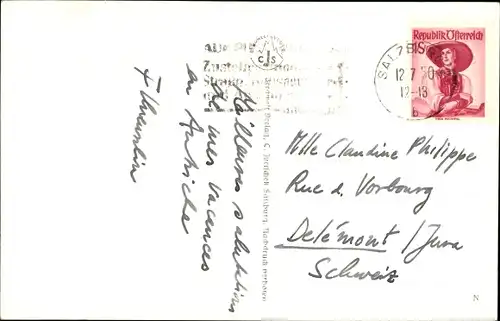 Meilleures salutations
de mes vacances
en Autriche
Mlle Claudine Philippe
Rue d. Vorbourg
Delémont / Jura
Schweiz
Republik Österreich
SALZB
12.7.50
12-13
b
CJS
Verlag C. Jurischek Salzburg. Nachdruck verboten
N